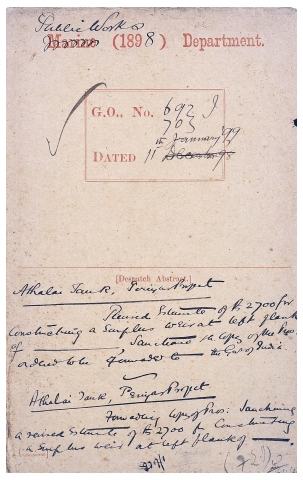 Public Works
Marine (1898) Department.
G.O., No. 692 I
703
11th January '99
DATED December 98
[Despatch Abstract.]
Athalai Tank, Periyar Project
Revised Estimate of Rs 2700 for
Constructing a Surplus weir at left flank
of Sanctioned copy of the Proc:
ordered to be forwarded to the Gov of India.
Athalai Tank, Periyar Project
Forwarding copy of Proc: Sanctioning
a revised Estimate of Rs 2700 for Constructing
a Surplus weir at left flank of